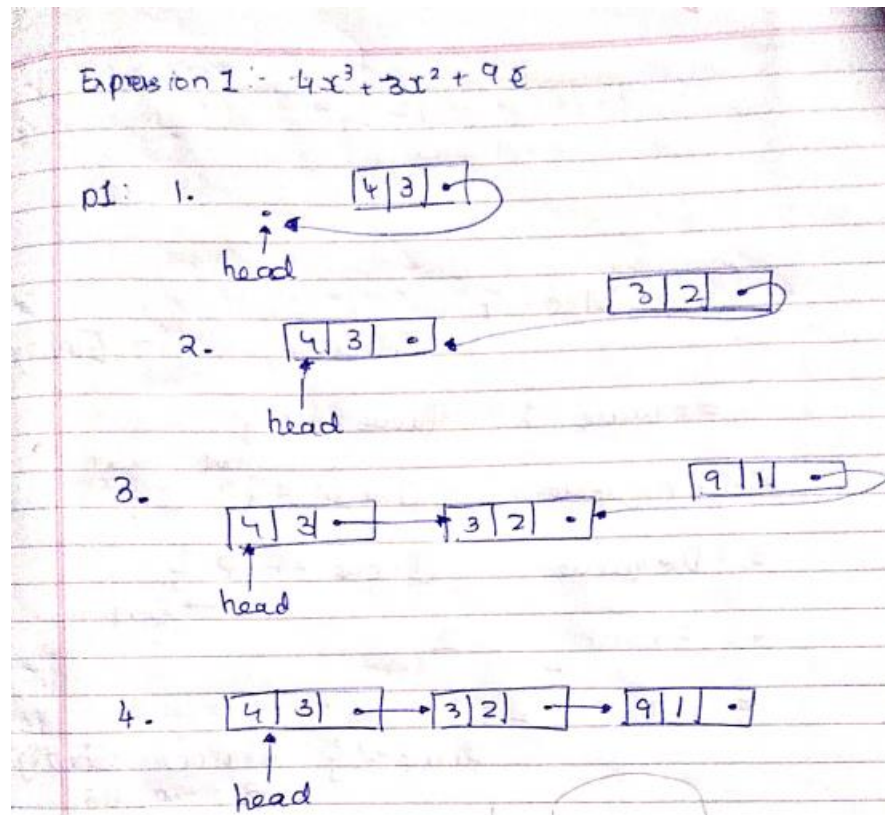 Expression 1 :- 4x³ + 3x² + 9
p1: 1. 4 3
head
3 2
2. 4 3
head
9 1
3. 4 3 3 2
head
4. 4 3 3 2 9 1
head